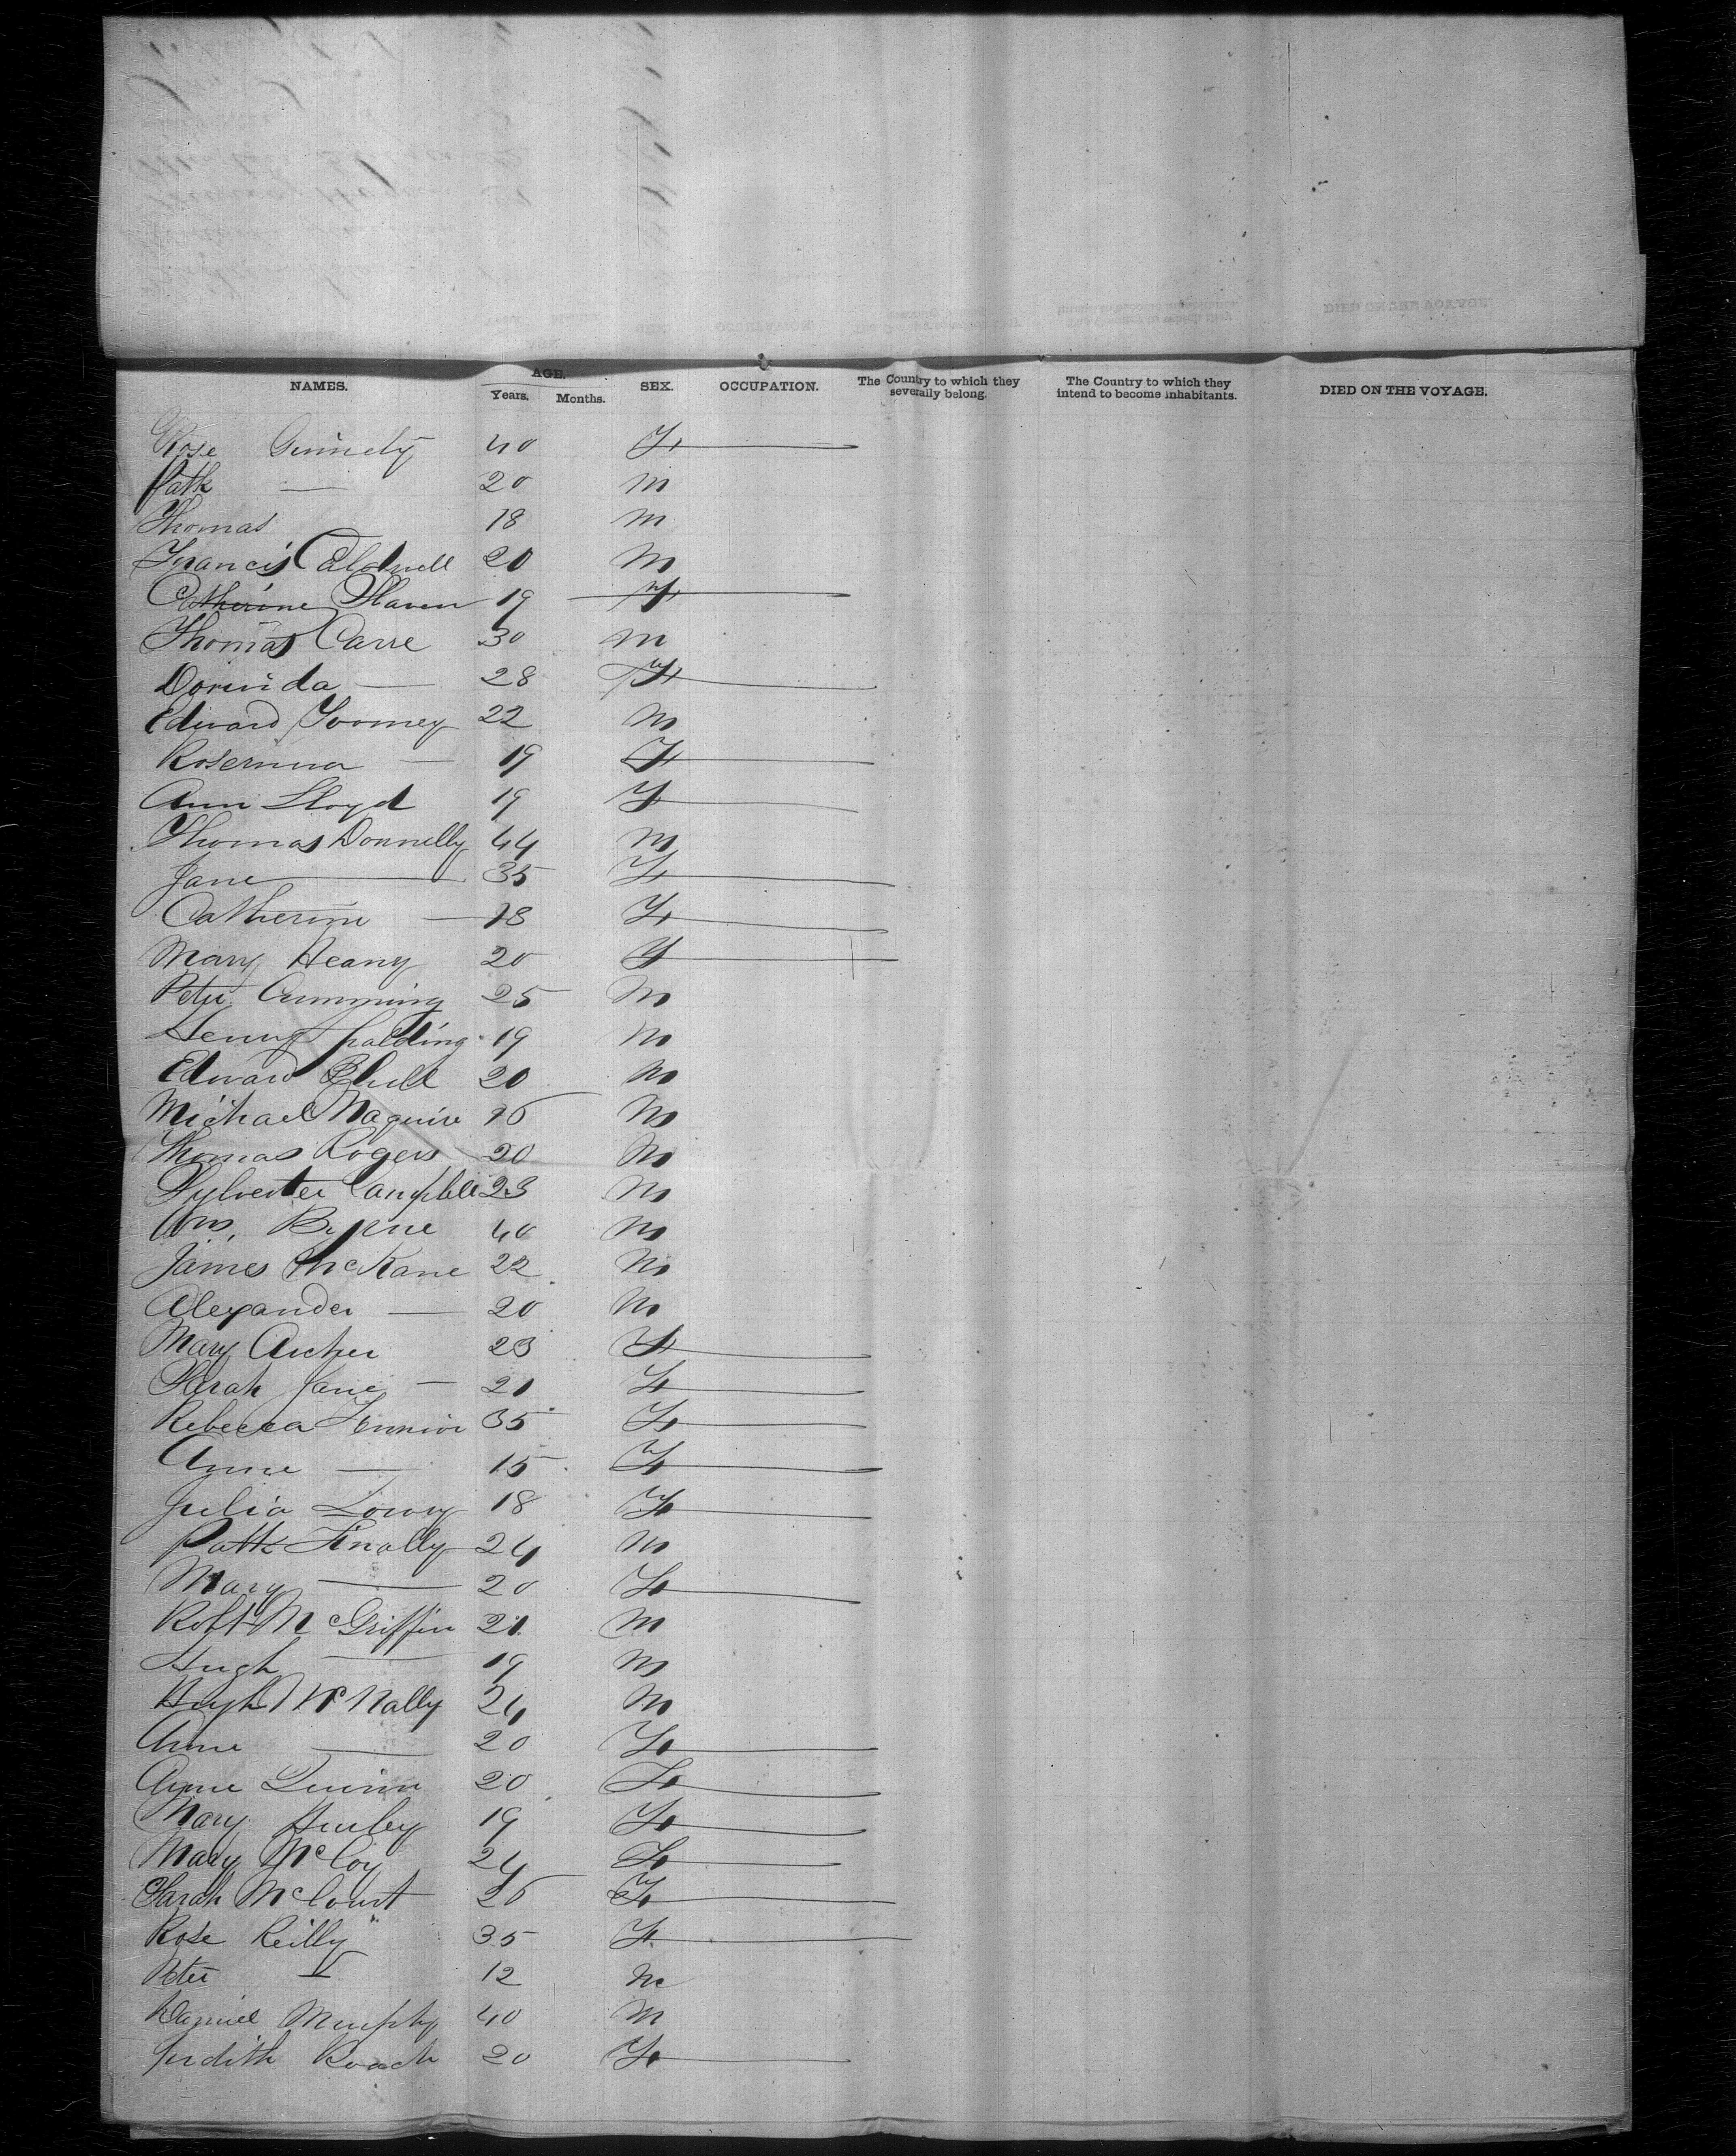 NAMES. AGE. Years. Months. SEX. OCCUPATION. The Country to which they severally belong. The Country to which they intend to become inhabitants. DIED ON THE VOYAGE.
Rose 40 F
Patk — 20 M
Thomas 18 M
Francis Caldwell 20 M
Catherine Slaven 19 F
Thomas Carre 30 M
Dorinda — 28 F
Edward Toomey 22 M
— 19 F
Ann Lloyd 19 F
Thomas Donnelly 44 M
Jane — 35 F
Catherine — 18 F
Mary Heany 20 F
Peter Cumming 25 M
Henry Spalding 19 M
Edward 20 M
Michael Maguire M
Thomas Rogers 20 M
Sylvester Campbell 23 M
Wm. Byrne 40 M
James McKane 22 M
Alexander — 20 M
Mary Archer 23 F
Sarah Jane — 21 F
Rebecca 35 F
Anne — 15 F
Julia Lowry 18 F
Patk Finally 24 M
Mary — 20 F
Robt McGriffin 21 M
Hugh — 19 M
Hugh McNally 24 M
Anne — 20 F
Anne Quinn 20 F
Mary Hurley 19 F
Mary McCoy 24 F
Sarah McCourt 25 F
Rose Reilly 35 F
Peter — 12 M
Daniel Murphy 40 M
Judith Roach 20 F